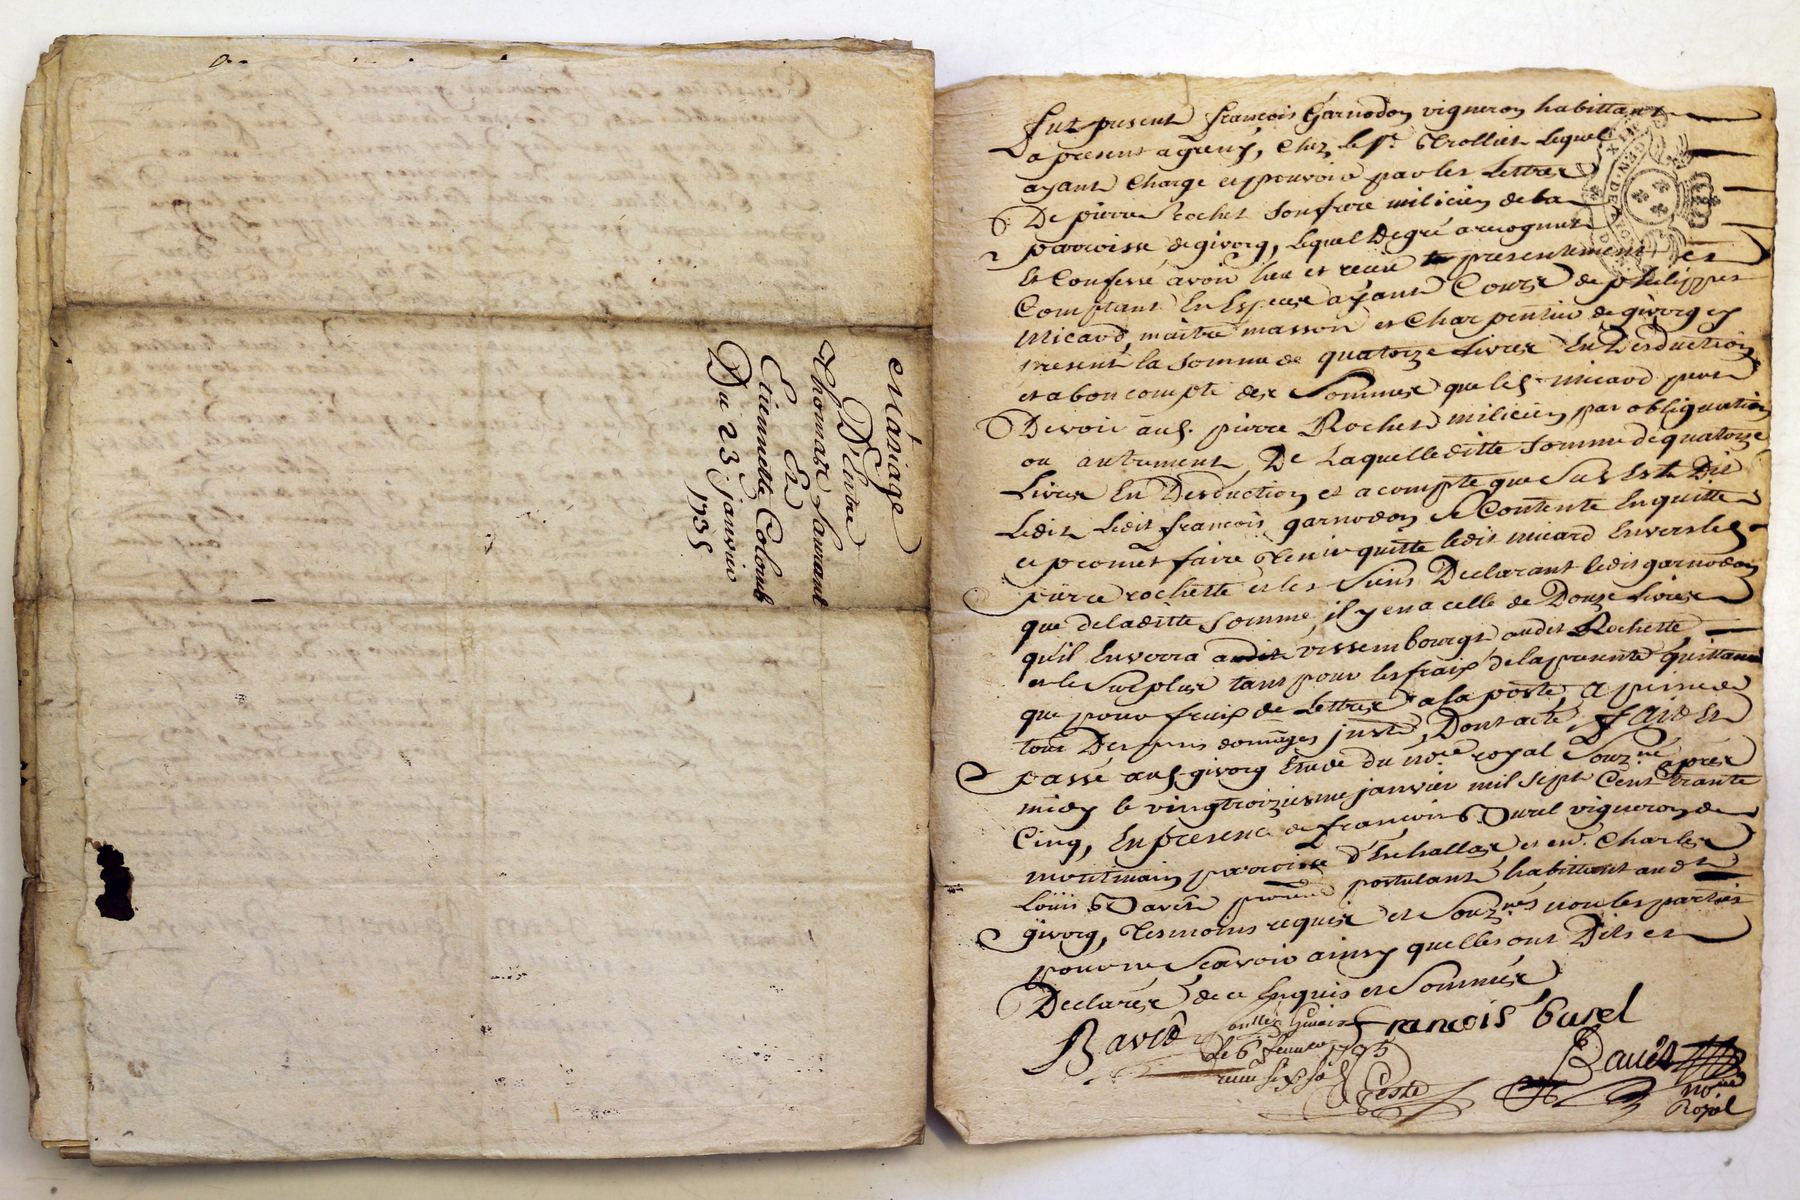 Mariage
D'Entre
Thomas Laurant
Et
Etiennette Colomb
Du 23 janvier
1735
fut present françois Garnodon vigneron habittant
a present agreny, Chez le sr. Trollier Lequel
ayant Charge et pouvoir par les Lettres
De pierre Rochet son frere milicien de la
parroisse de givorz, Lequel De gré a recognut
Et Confessé avoir heu et receu presentement et
Comptant En Especes ayant Cours de philippes
Micard, maitre masson et Charpentier de givorz ey
present la somme de quatorze Livres En Desduction
et a bon compte des Sommes que led. micard peut
Devoir aud. pierre Rochet milicien par obligation
ou autrement, De Laquelleditte somme de quatorze
Livres En Desduction et a compte que Sus Est Dit
Ledit Ledit françois garnodon se Contente En quitte
et promet faire Tenir quitte ledit micard Envers led.
pierre rochette et les Siens Declarant ledit garnodon
que deladitte somme, il y en a celle de Douze Livres
qu'il Enverra audit vissembourgt audit Rochette
et le Surplus tant pour les frais de la presente quittance
que pour frais de Lettres a la poste, a peine de
tous Despens domages justes, Dont acte, fait Et
passé aud. givorz Etude du nore. royal Souz.né après
midy le vingtroizieme janvier mil sept Cent trante
Cinq, En presence de françois Burel vigneron de
montmain parroisse d'Echallas et me. Charles
Louis Bavet praticien postulant habittant aud.
givorz, Tesmoins requis et Souz.nés non les parties
pour ne Scavoir ainsy quelles ont Dit et
Declarés de ce Enquis et Sommés
Bavet
François burel
le 6 fevrier 1735
Bavet
nore
Royal